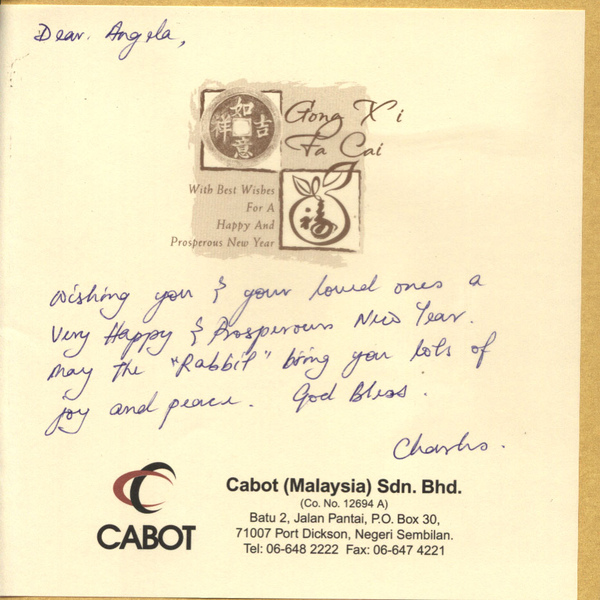 Dear. Angela,
如
祥 吉
意
Gong Xi
Fa Cai
With Best Wishes
For A
Happy And
Prosperous New Year
福
Wishing you & your loved ones a
Very Happy & Prosperous New Year.
May the "Rabbit" bring you lots of
joy and peace. God Bless.
Charles.
CABOT
Cabot (Malaysia) Sdn. Bhd.
(Co. No. 12694 A)
Batu 2, Jalan Pantai, P.O. Box 30,
71007 Port Dickson, Negeri Sembilan.
Tel: 06-648 2222 Fax: 06-647 4221